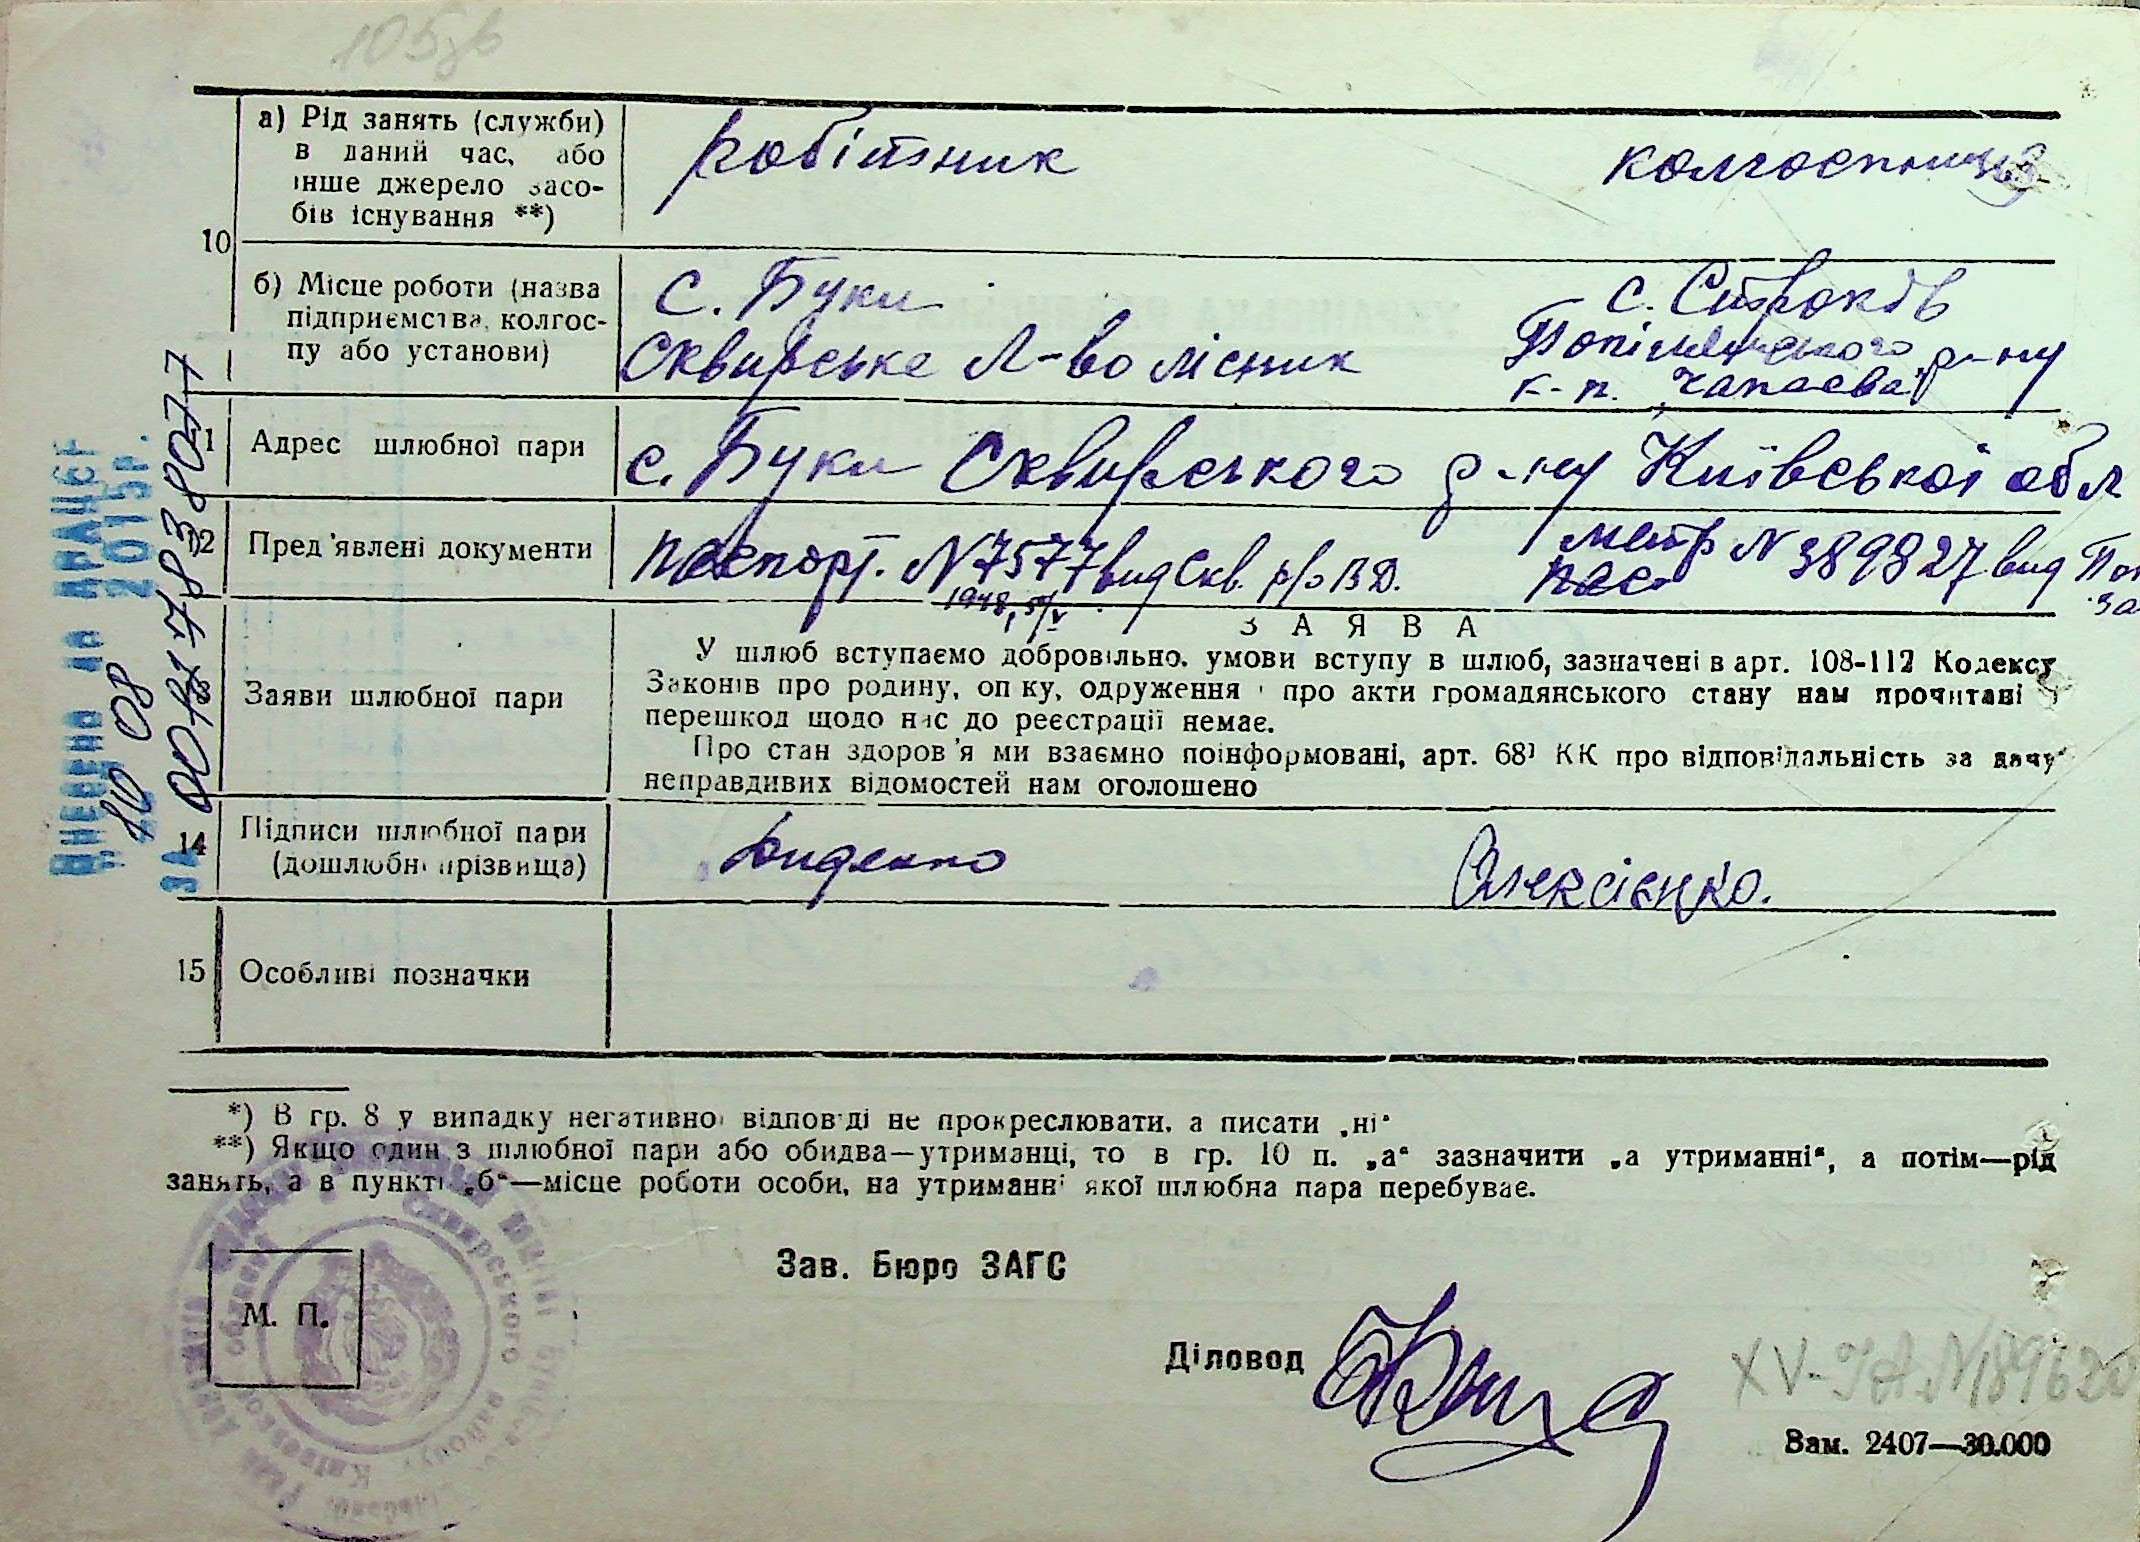 а) Рід занять (служби) в даний час, або інше джерело засобів існування **)
робітник
колгоспниця
10
б) Місце роботи (назва підприємства, колгоспу або установи)
с. Буки
Сквирське л-во лісник
с. Строків
Попільнянського р-ну
к-п. „Чапаєва"
11 Адрес шлюбної пари
с. Буки Сквирського р-ну Київської обл
12 Пред'явлені документи
паспорт. N 7577 вид Скв. р/о ВД.
1948, 5/V
метр N 389827 вид Поп
пас
за
ЗАЯВА
Заяви шлюбної пари
У шлюб вступаємо добровільно, умови вступу в шлюб, зазначені в арт. 108-112 Кодексу
Законів про родину, опіку, одруження і про акти громадянського стану нам прочитані і
перешкод щодо нас до реєстрації немає.
Про стан здоров'я ми взаємно поінформовані, арт. 68¹ КК про відповідальність за дачу
неправдивих відомостей нам оголошено
14 Підписи шлюбної пари
(дошлюбні прізвища)
Олексієнко.
15 Особливі позначки
*) В гр. 8 у випадку негативної відповіді не прокреслювати, а писати „ні"
**) Якщо один з шлюбної пари або обидва—утриманці, то в гр. 10 п. „а" зазначити „а утриманні", а потім—рід
занять, а в пункті „б"—місце роботи особи, на утриманні якої шлюбна пара перебуває.
Зав. Бюро ЗАГС
М. П.
Діловод
XV-УА N 189620
Зам. 2407—30.000
Внесено до ДРАЦСГ
10 08 2015р.
ЗА 00117838077
Сквирського району
Київської області